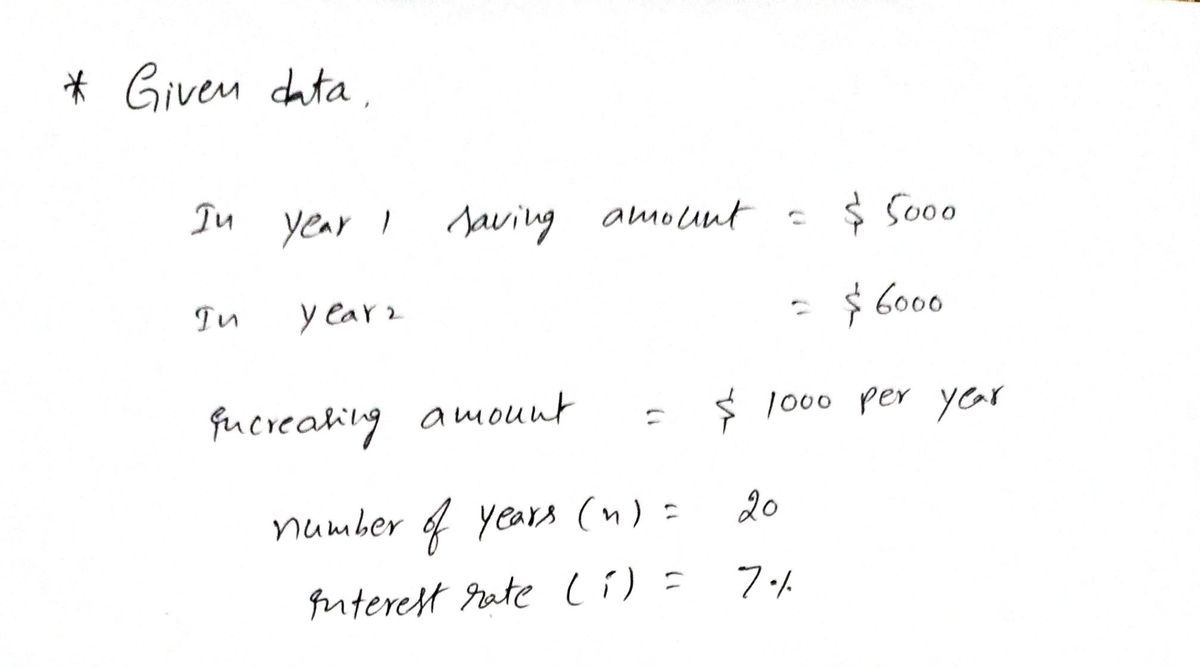 * Given data.
In year 1 saving amount = $ 5000
In year 2 = $ 6000
Increasing amount = $ 1000 per year
number of years (n) = 20
Interest rate (i) = 7%